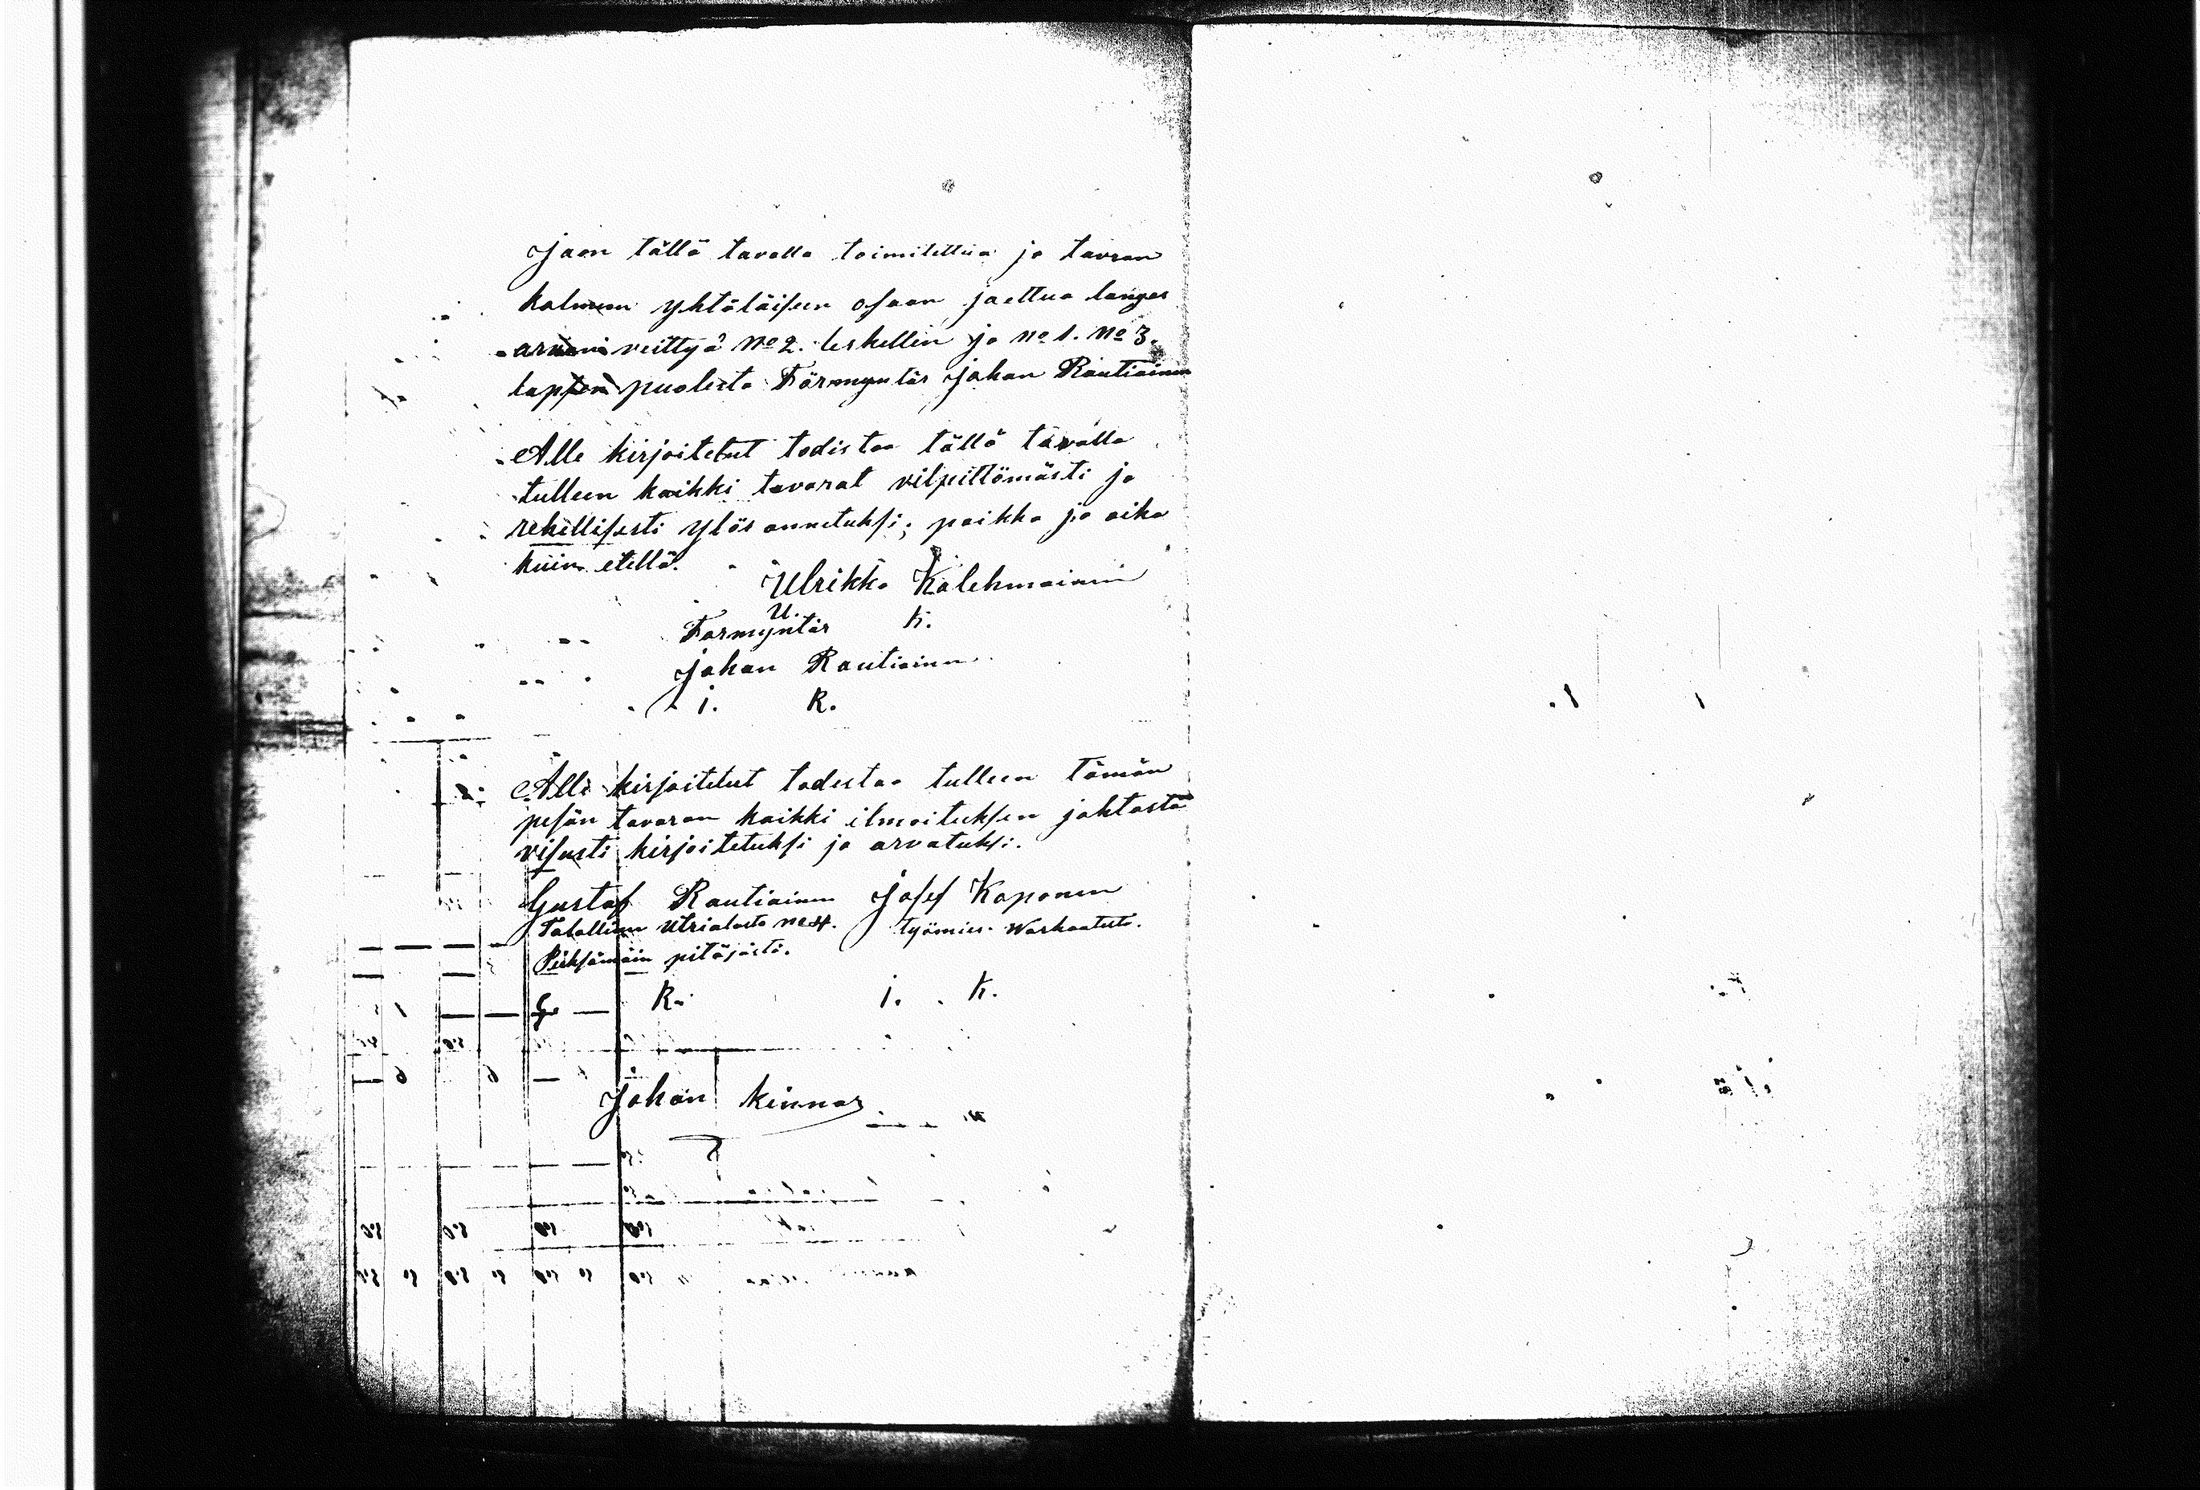 Jaon tällä tavalla toimitettua ja tavran
kolmeen yhtäläiseen osaan jaettua langes
veittyä No 2. leskellen ja No 1. No 3.
lapsen puolesta Förmyntär Johan Rautiainen
Alle kirjoitetut todistaa tällä tavalla
tulleen kaikki tavarat vilpittömästi ja
rehellisesti ylös annetuksi; paikka ja aika
kuin etellä.
Ulrikka Kolehmainen
U. K.
Formyntär
Johan Rautiainen
J. R.
Alle kirjoitetut todestaa tulleen tämän
pesän tavaran kaikki ilmoituksen johtosta
visusti kirjoitetuksi ja arvatuksi.
Gustaf Rautiainen Josef Koponen
Talollinen Utrialasta No 4. työmies Warkaudesta.
Pieksämäin pitäjästä.
G. R. J. K.
Johan Kinnar